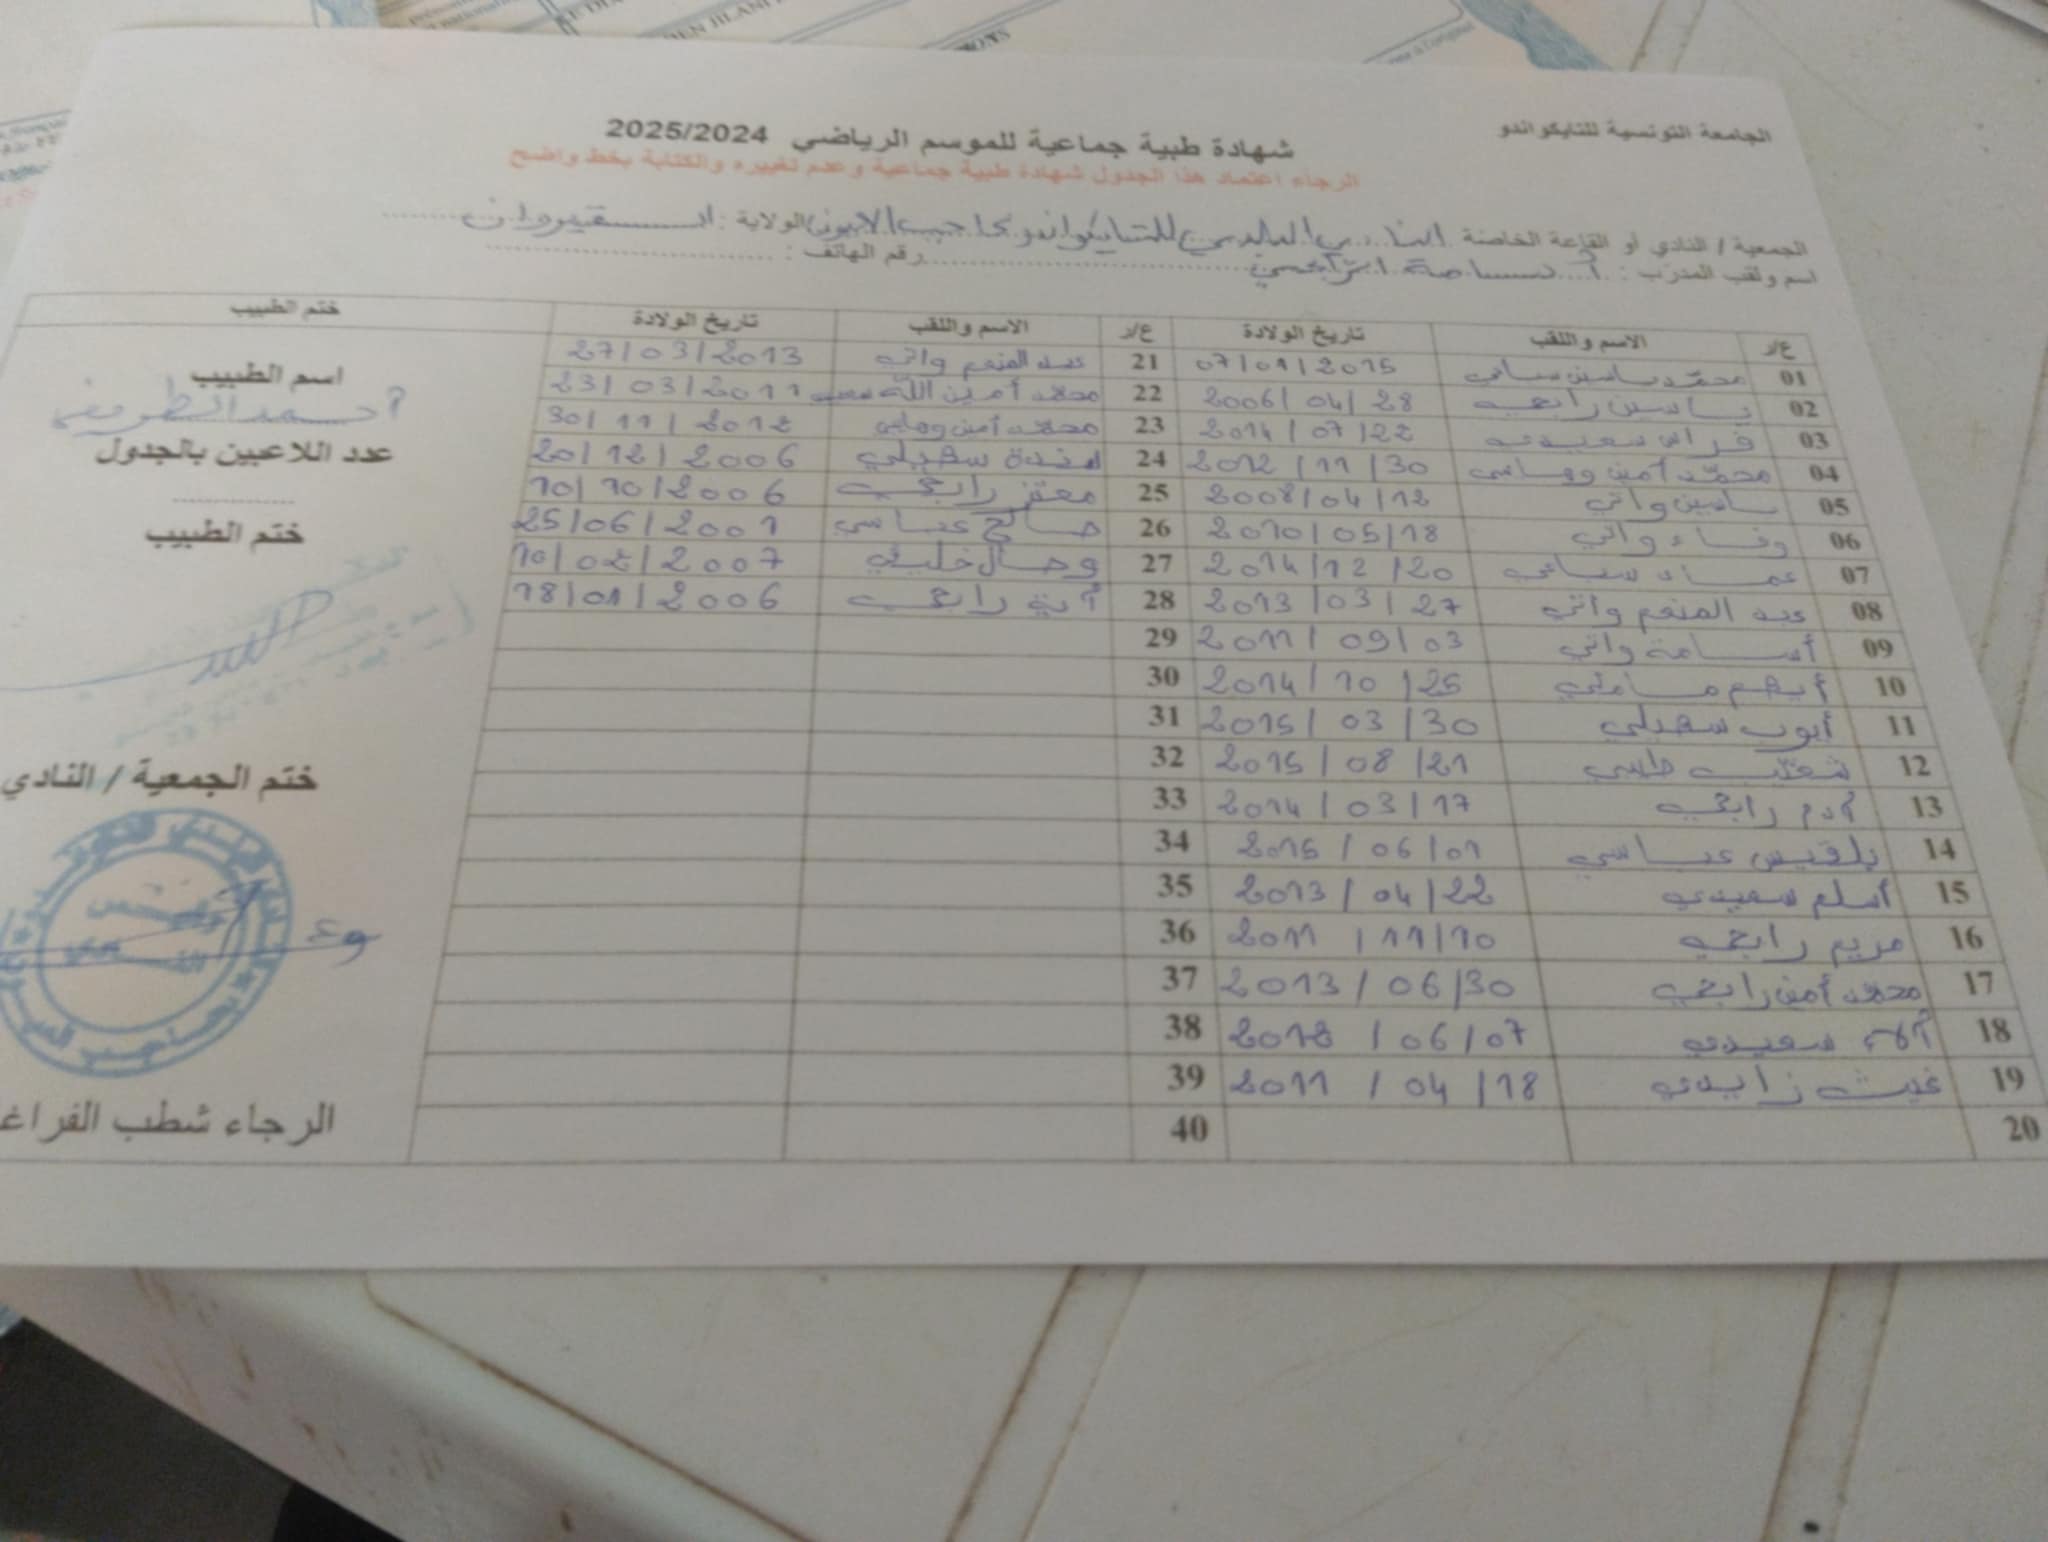 الجامعة التونسية للتايكواندو
شهادة طبية جماعية للموسم الرياضي 2025/2024
الرجاء اعتماد هذا الجدول شهادة طبية جماعية وعدم تغييره والكتابة بخط واضح
الجمعية / النادي أو القاعة الخاصة النادي البلدي للتايكواندو بحاجب العيون الولاية : القيروان
اسم ولقب المدرب : أسامة الرابحي رقم الهاتف :
ع/ر الاسم واللقب تاريخ الولادة ع/ر الاسم واللقب تاريخ الولادة ختم الطبيب
01 محمد ياسين 07/01/2015 21 عبد المنعم واتي 27/03/2013
02 ياسين رابحي 2006/04/28 22 محمد أمين الله 23/03/2011
03 فراس سعيدي 2014/07/22 23 محمد أمين وهابي 30/11/2012
04 محمد أمين 2012/11/30 24 سهيلي 20/12/2006
05 ياسين واتي 2008/04/12 25 معتز رابحي 10/10/2006
06 وفاء واتي 2010/05/18 26 صالح عباسي 25/06/2001
07 عماد 2014/12/20 27 وصال خليفي 10/02/2007
08 عبد المنعم واتي 2013/03/27 28 آية رابحي 18/01/2006
09 أسامة واتي 2011/09/03 29
10 أيهم 2014/10/25 30
11 أيوب سهيلي 2015/03/30 31
12 2015/08/21 32
13 آدم رابحي 2014/03/17 33
14 بلقيس عباسي 2015/06/01 34
15 أسلم سعيدي 2013/04/22 35
16 مريم رابحي 2011/11/10 36
17 محمد أمين رابحي 2013/06/30 37
18 آلاء سعيدي 2012/06/07 38
19 غيث زايدي 2011/04/18 39
20 40
اسم الطبيب
أحمد
عدد اللاعبين بالجدول
ختم الطبيب
ختم الجمعية / النادي
الرجاء شطب الفراغ